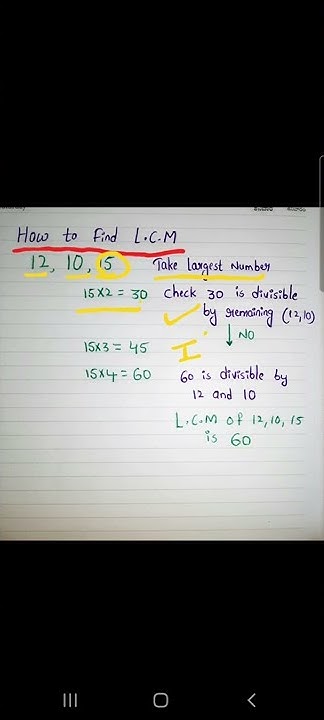 How to find L.C.M
12, 10, 15 Take Largest Number
15×2 = 30 Check 30 is divisible
by remaining (12,10)
↓ NO
15×3 = 45
15×4 = 60 60 is divisible by
12 and 10
L.C.M of 12, 10, 15
is 60